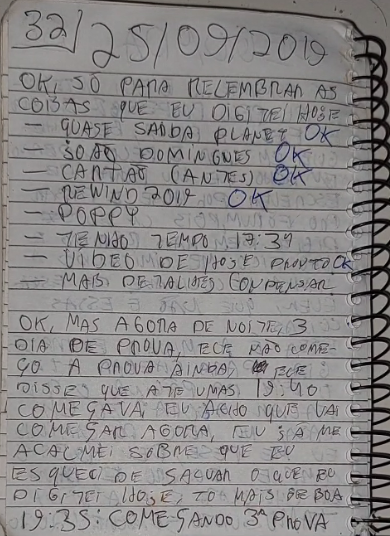 32 25/09/2019
OK, SÓ PARA RELEMBRAR AS
COISAS QUE EU DIGITEI HOJE
- QUASE SAIDA PLANET OK
- JOÃO DOMINGUES OK
- CARTÃO (ANTES) OK
- REWIND 2019 OK
- POPPY
- TENHO TEMPO 17:34
- VIDEO DE HOJE PRONTO OK
- MAIS DETALHES CONDENSAR
OK, MAS AGORA DE NOITE, 3
DIA DE PROVA, ECE NÃO COME-
ÇO A PROVA AINDA, ECE
DISSE QUE ATE UMAS 19:40
COMEÇAVA, EU ACHO QUE VAI
COMEÇAR AGORA, EU JÁ ME
ACALMEI SOBRE QUE EU
ESQUECI DE SALVAR O QUE EU
DIGITEI HOJE, TO MAIS DE BOA
19:35: COMEÇANDO 3ª PROVA